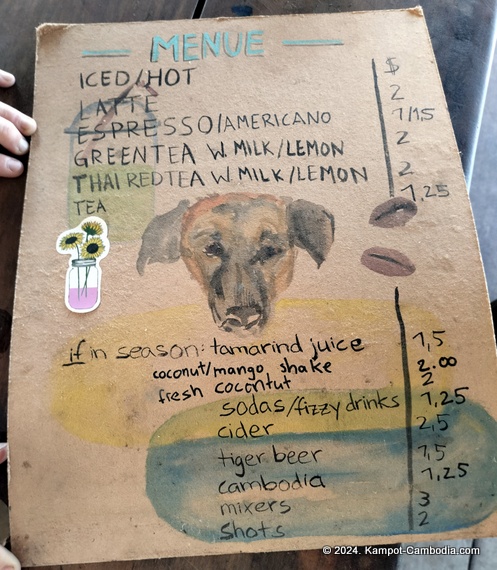 MENUE
ICED/HOT $
LATTE 2
ESPRESSO/AMERICANO 1/1,5
GREENTEA W. MILK/LEMON 2
THAI REDTEA W. MILK/LEMON 2
TEA 1,25
if in season: tamarind juice 1,5
coconut/mango shake 2.00
fresh coconut 2
sodas/fizzy drinks 1,25
cider 2,5
tiger beer 1,5
cambodia 1,25
mixers 3
shots 2
© 2024. Kampot-Cambodia.com